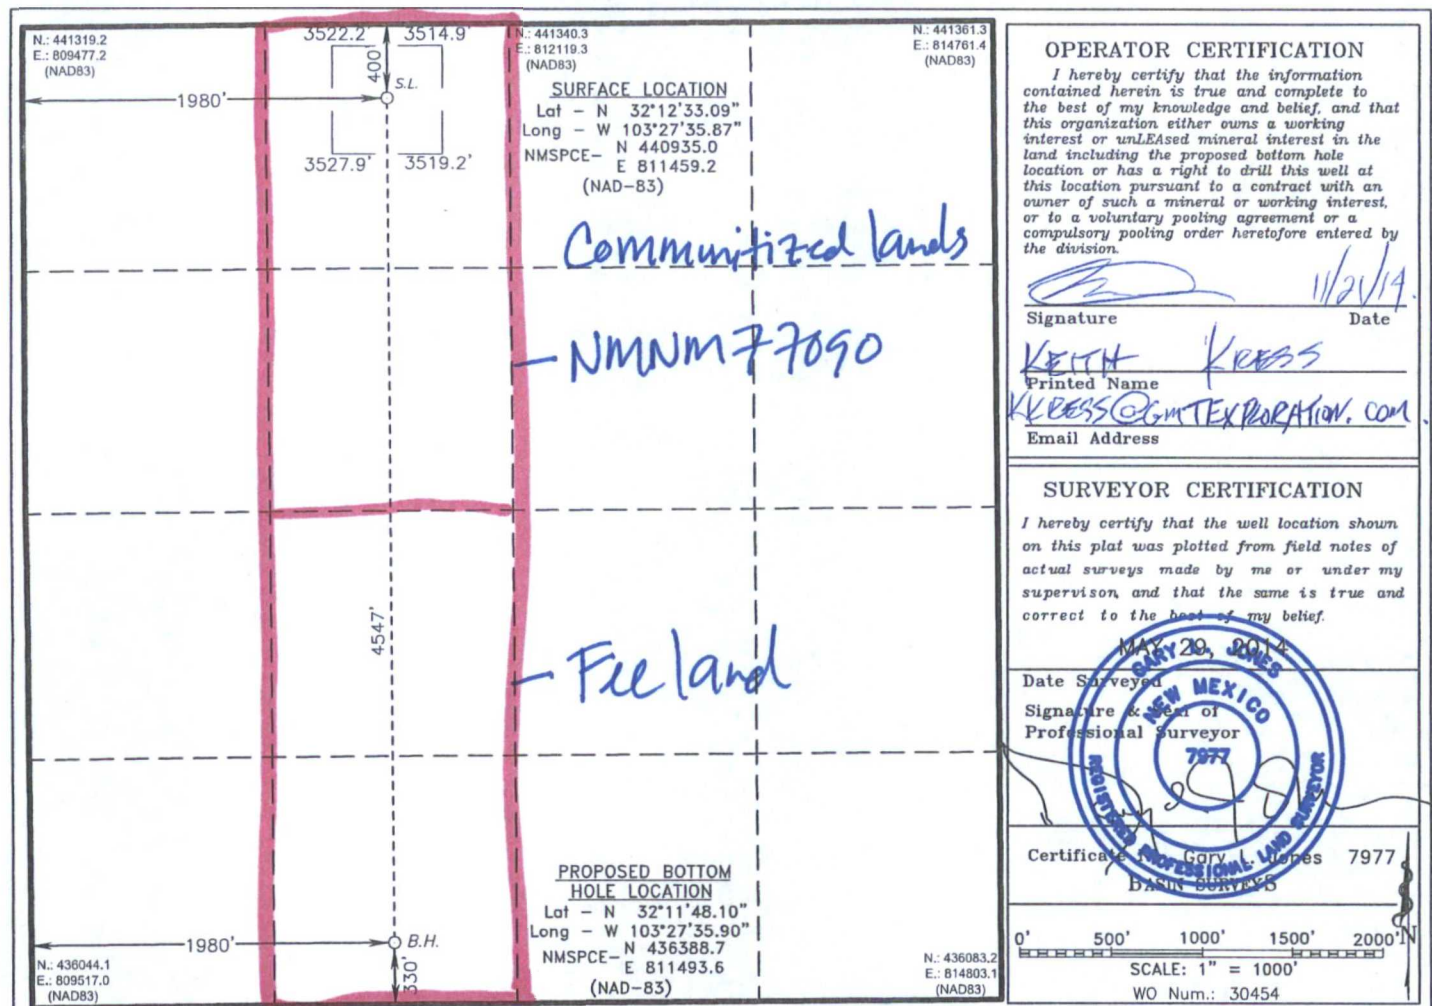 N.: 441319.2
E.: 809477.2
(NAD83)
3522.2' 3514.9'
N.: 441340.3
E.: 812119.3
(NAD83)
N.: 441361.3
E.: 814761.4
(NAD83)
400'
S.L.
1980'
3527.9' 3519.2'
SURFACE LOCATION
Lat - N 32°12'33.09"
Long - W 103°27'35.87"
NMSPCE- N 440935.0
E 811459.2
(NAD-83)
Communitized lands
NMNM77090
4547'
Fee land
PROPOSED BOTTOM
HOLE LOCATION
Lat - N 32°11'48.10"
Long - W 103°27'35.90"
NMSPCE- N 436388.7
E 811493.6
(NAD-83)
1980'
B.H.
330'
N.: 436044.1
E.: 809517.0
(NAD83)
N.: 436083.2
E.: 814803.1
(NAD83)
OPERATOR CERTIFICATION
I hereby certify that the information
contained herein is true and complete to
the best of my knowledge and belief, and that
this organization either owns a working
interest or unLEAsed mineral interest in the
land including the proposed bottom hole
location or has a right to drill this well at
this location pursuant to a contract with an
owner of such a mineral or working interest,
or to a voluntary pooling agreement or a
compulsory pooling order heretofore entered by
the division.
11/21/14.
Signature Date
KEITH KRESS
Printed Name
KKRESS@GMTEXPLORATION.COM.
Email Address
SURVEYOR CERTIFICATION
I hereby certify that the well location shown
on this plat was plotted from field notes of
actual surveys made by me or under my
supervison, and that the same is true and
correct to the best of my belief.
MAY 29, 2014
Date Surveyed
Signature & Seal of
Professional Surveyor
GARY L. JONES
NEW MEXICO
7977
REGISTERED PROFESSIONAL LAND SURVEYOR
Certificate Gary L. Jones 7977
BASIN SURVEYS
0' 500' 1000' 1500' 2000'
N
SCALE: 1" = 1000'
WO Num.: 30454